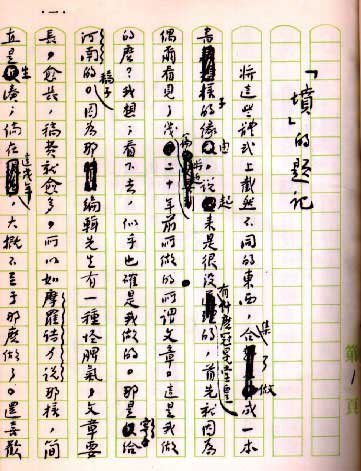 一
「墳」的題記
將這些體式上截然不同的東西，集合了做成一本
書樣子的緣由，說起來是很沒有什麼冠冕堂皇的，首先就因為
偶爾看見了幾篇將近二十年前所做的所謂文章。這是我做
的麼？我想；看下去，似乎也確是我做的。那是寄給
河南的稿子。因為那編輯先生有一種怪脾氣，文章要
長，愈長，稿費就愈多，所以如摩羅詩力說那樣，簡
直是生湊；倘在這幾年，大概不至于那麼做了。還喜歡
第 1 頁